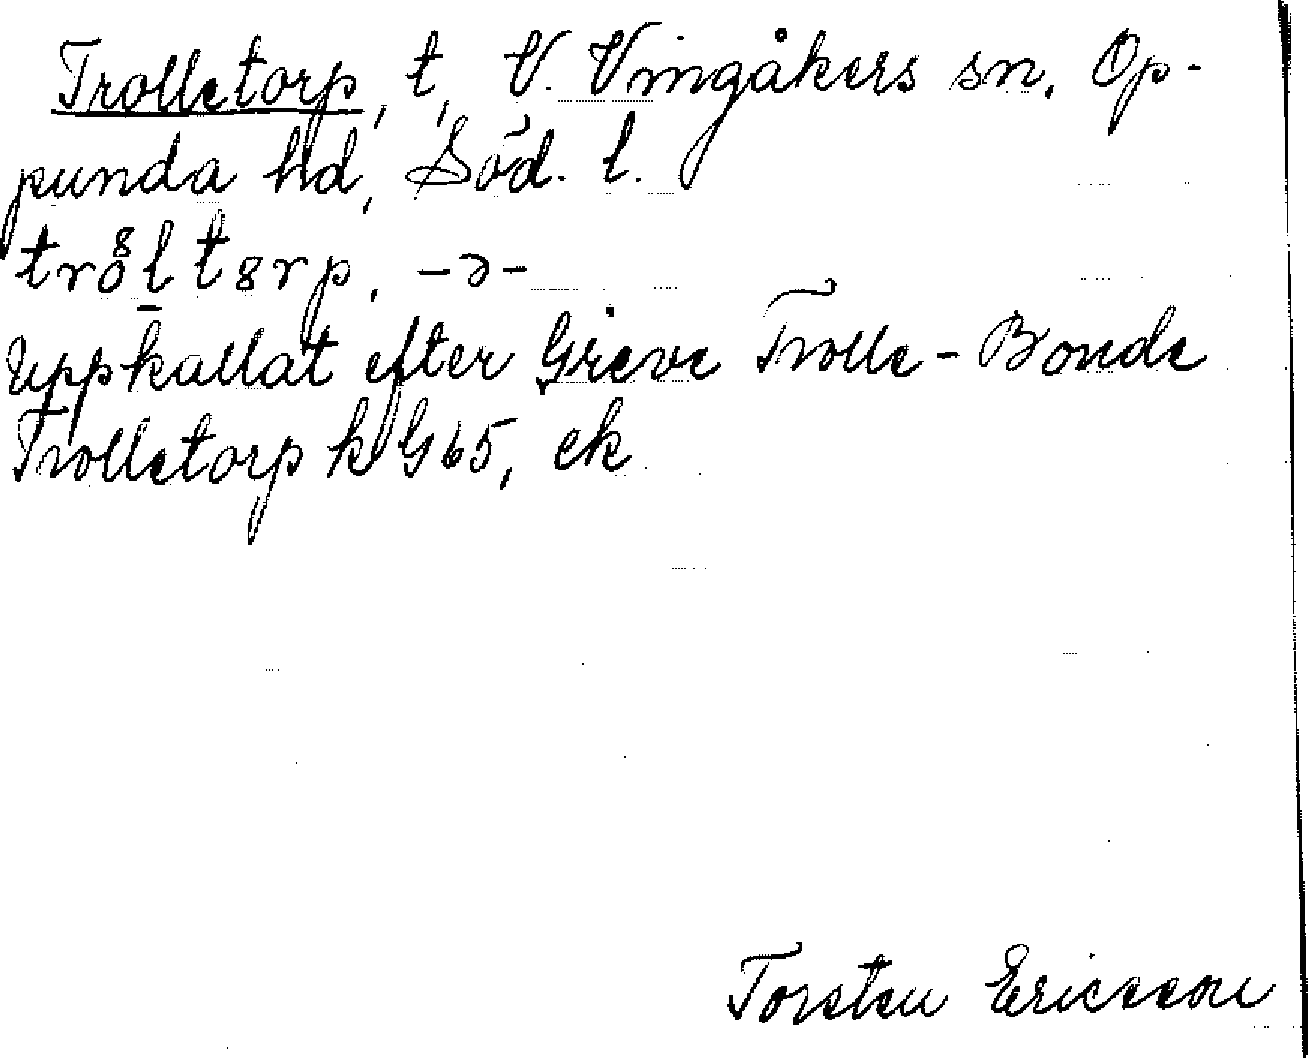 Trolletorp, t, V. Vingåkers sn, Op-
punda hd, Söd. l.
trol̠t8rp, -ə-
Uppkallat efter Greve Trolle-Bonde
Trolletorp k G65, ek
Torsten Ericsson